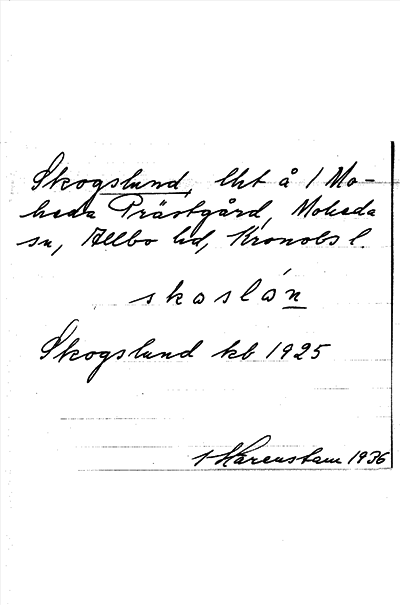 Skogslund, lht å 1 Mo-
heda Prästgård, Moheda
sn, Allbo hd, Kronobs l.
skɑslón
Skogslund kb 1925
Harenstam 1936